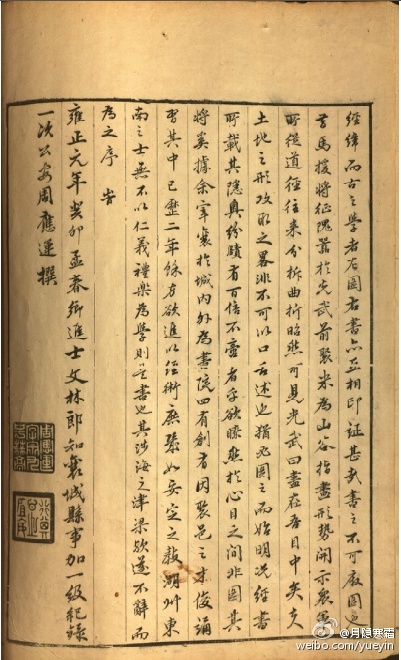 經緯而古之學者左圖右書亦互相印證甚哉書之不可廢圖也
昔馬援將征隗囂於光武前聚米為山谷指畫形勢開示衆軍
所從道徑往來分析曲折昭然可見光武曰盡在吾目中矣夫
土地之形攻取之畧非不可以口舌述也猶必圖之而始明况經書
所載其隱奧紛賾有百倍不啻者乎欲瞭然於心目之間非圖其
將奚據余宰襄於城内外為書院四有創有因聚邑之才俊誦
習其中已歷二年餘方欲進以經術庶幾如安定之教湖州東
南之士無不以仁義禮樂為學則是書也其涉海之津梁歟遂不辭而
為之序 旹
雍正元年癸卯孟春鄉進士文林郎知襄城縣事加一級紀錄
一次公安周應運撰
@月隐寒霜
weibo.com/yueyin